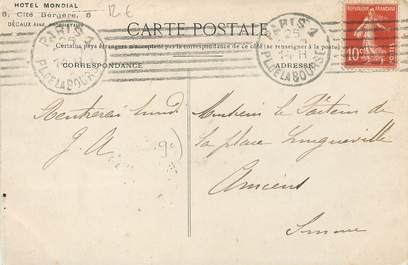 HOTEL MONDIAL
5, Cité Bergère, 5
12 €
DÉCAUX Aîné,
CARTE POSTALE
Certains pays étrangers n'acceptent pas la correspondance de ce côté (se renseigner à la poste)
CORRESPONDANCE
ADRESSE
PARIS 1
25
PL. DE LA BOURSE
PARIS 1
25
PL. DE LA BOURSE
RÉPUBLIQUE FRANÇAISE
10c
POSTES
Rentrerai lundi
J. A
Monsieur le Facteur de
la place Longueville
Amiens
Somme